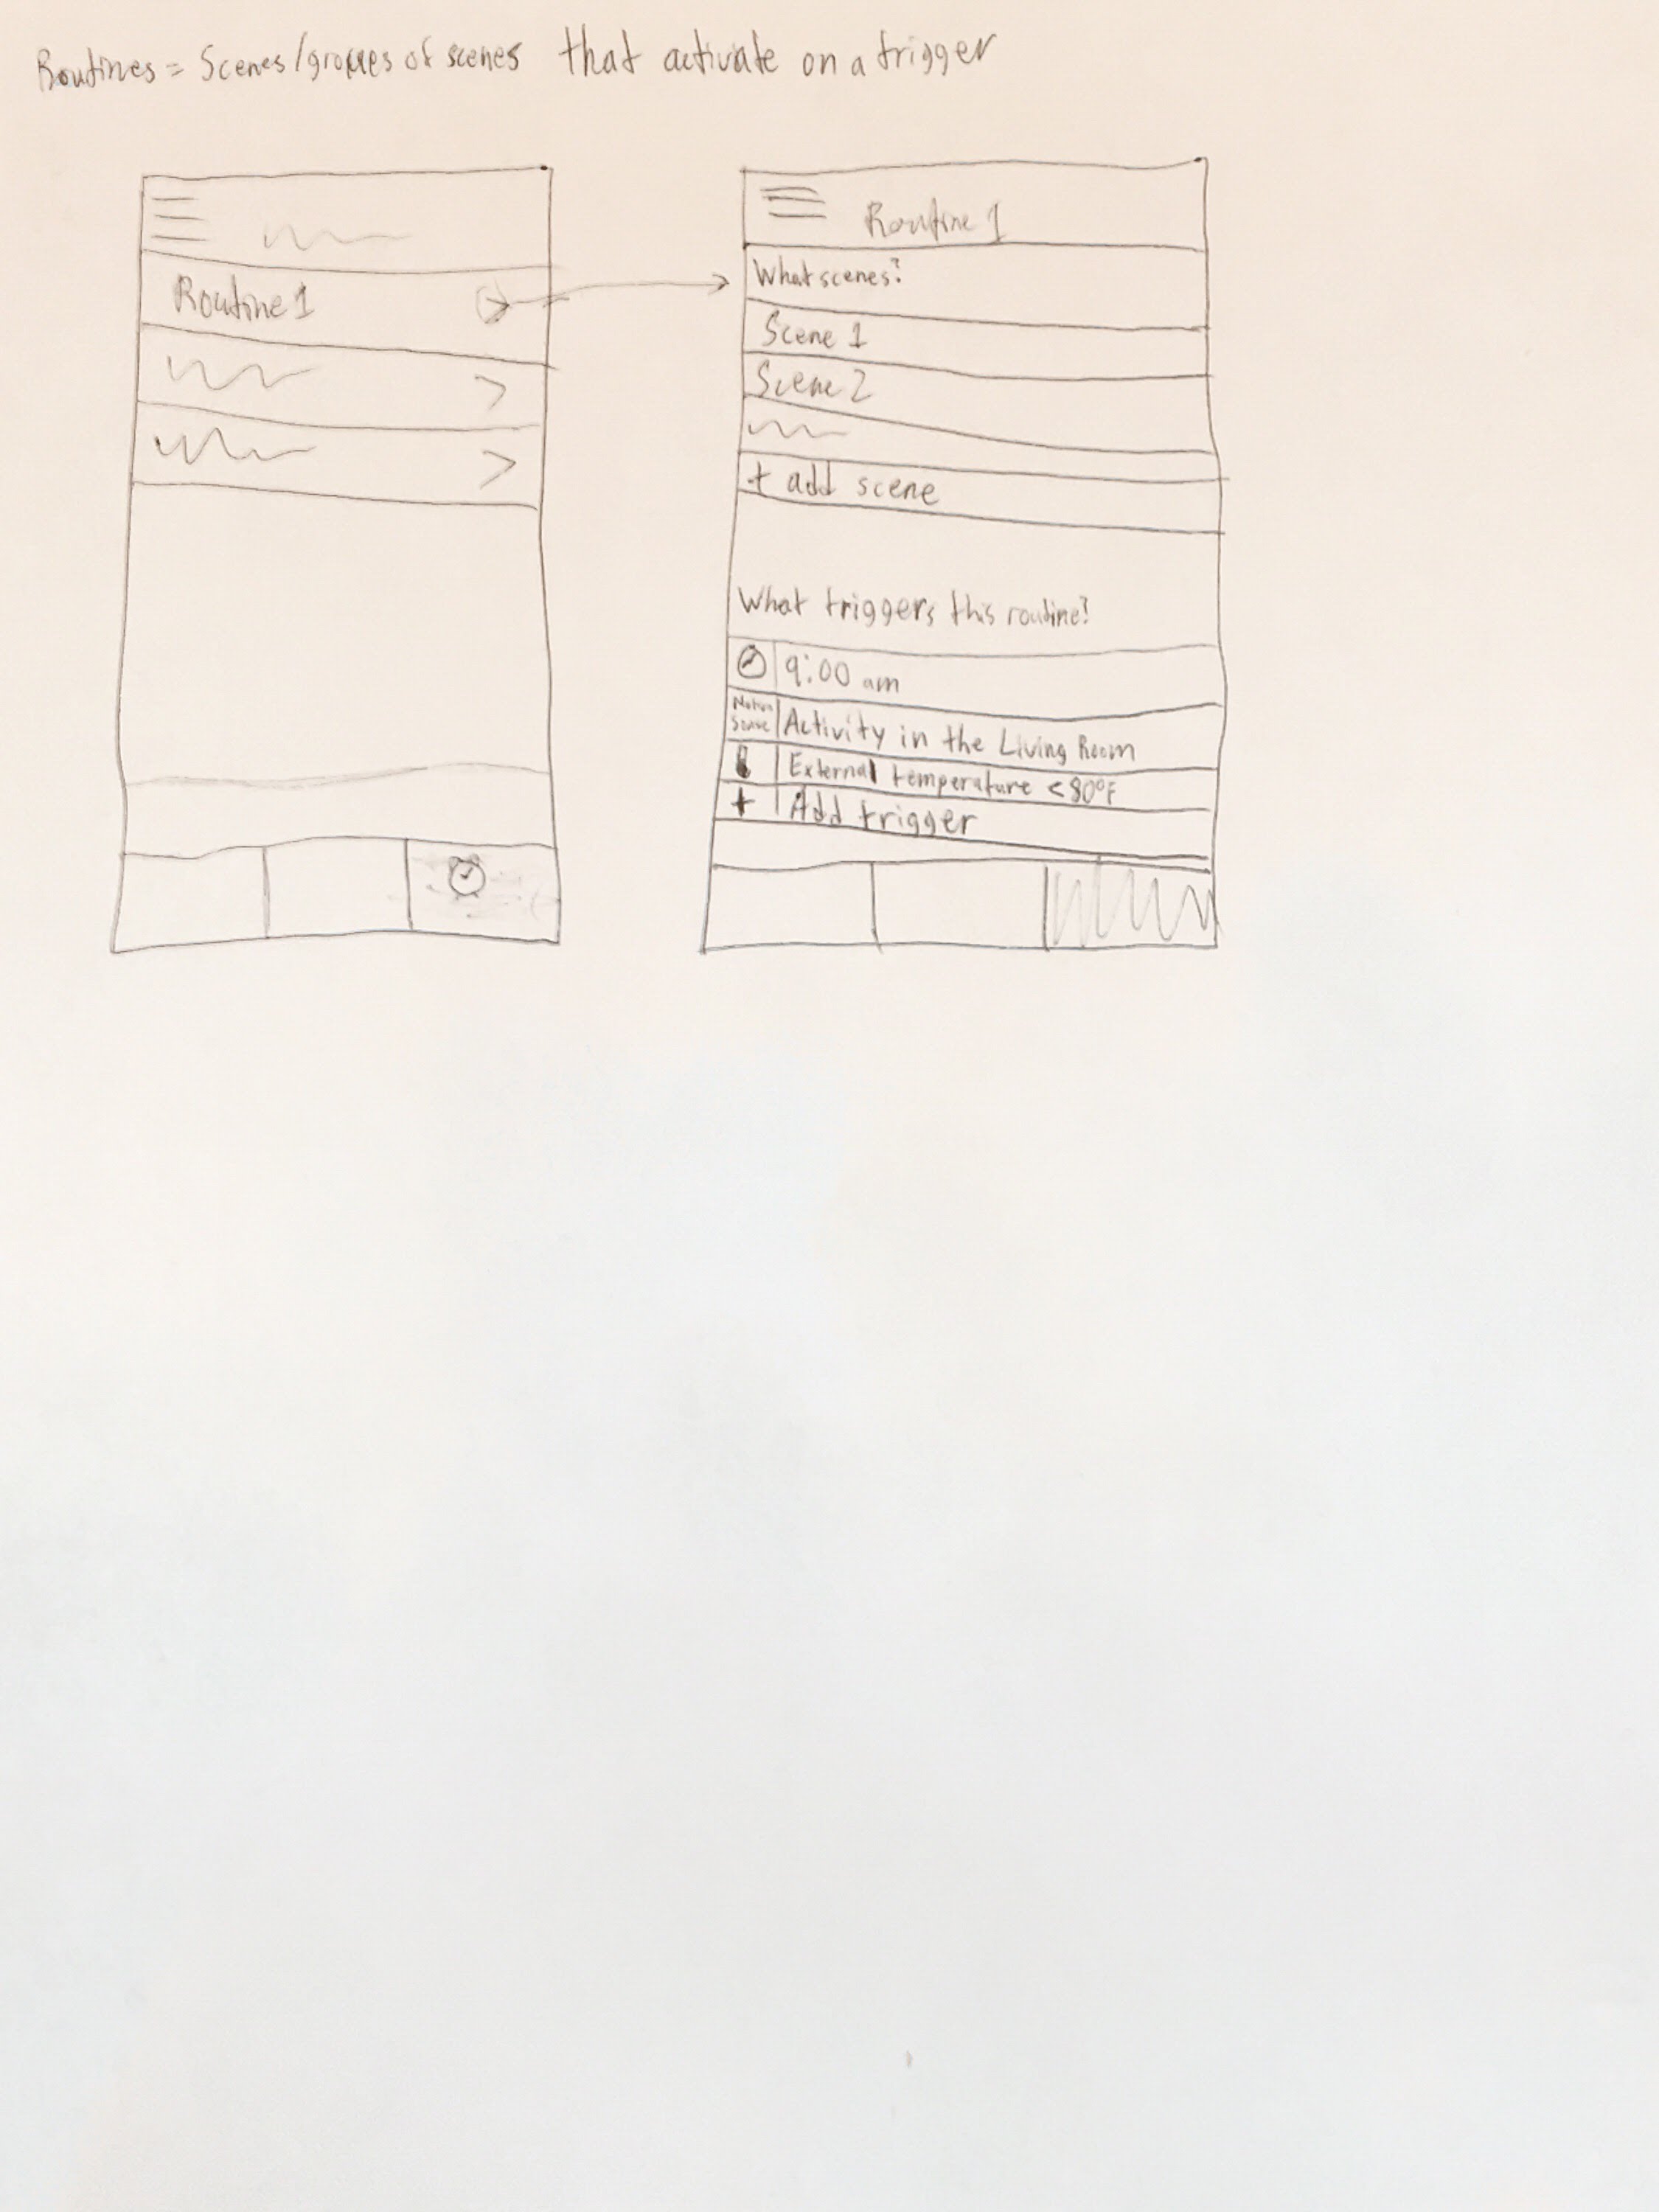 Routines = Scenes/groups of scenes that activate on a trigger
Routine 1
Routine 1
What scenes?
Scene 1
Scene 2
+ add scene
What triggers this routine?
9:00 am
Motion
Sense
Activity in the Living Room
External temperature < 80°F
+ Add trigger